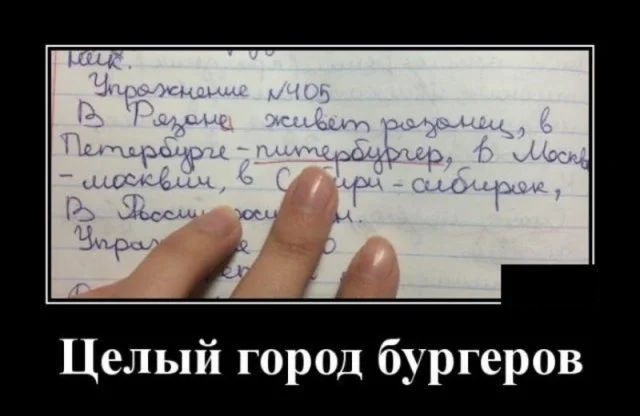 ник.
Упражнение №405
В Рязане живет рязанец, в
Петербурге - питербургер, в Москв
- москвич, в Сибири - сибиряк,
В России
Упраж
Целый город бургеров